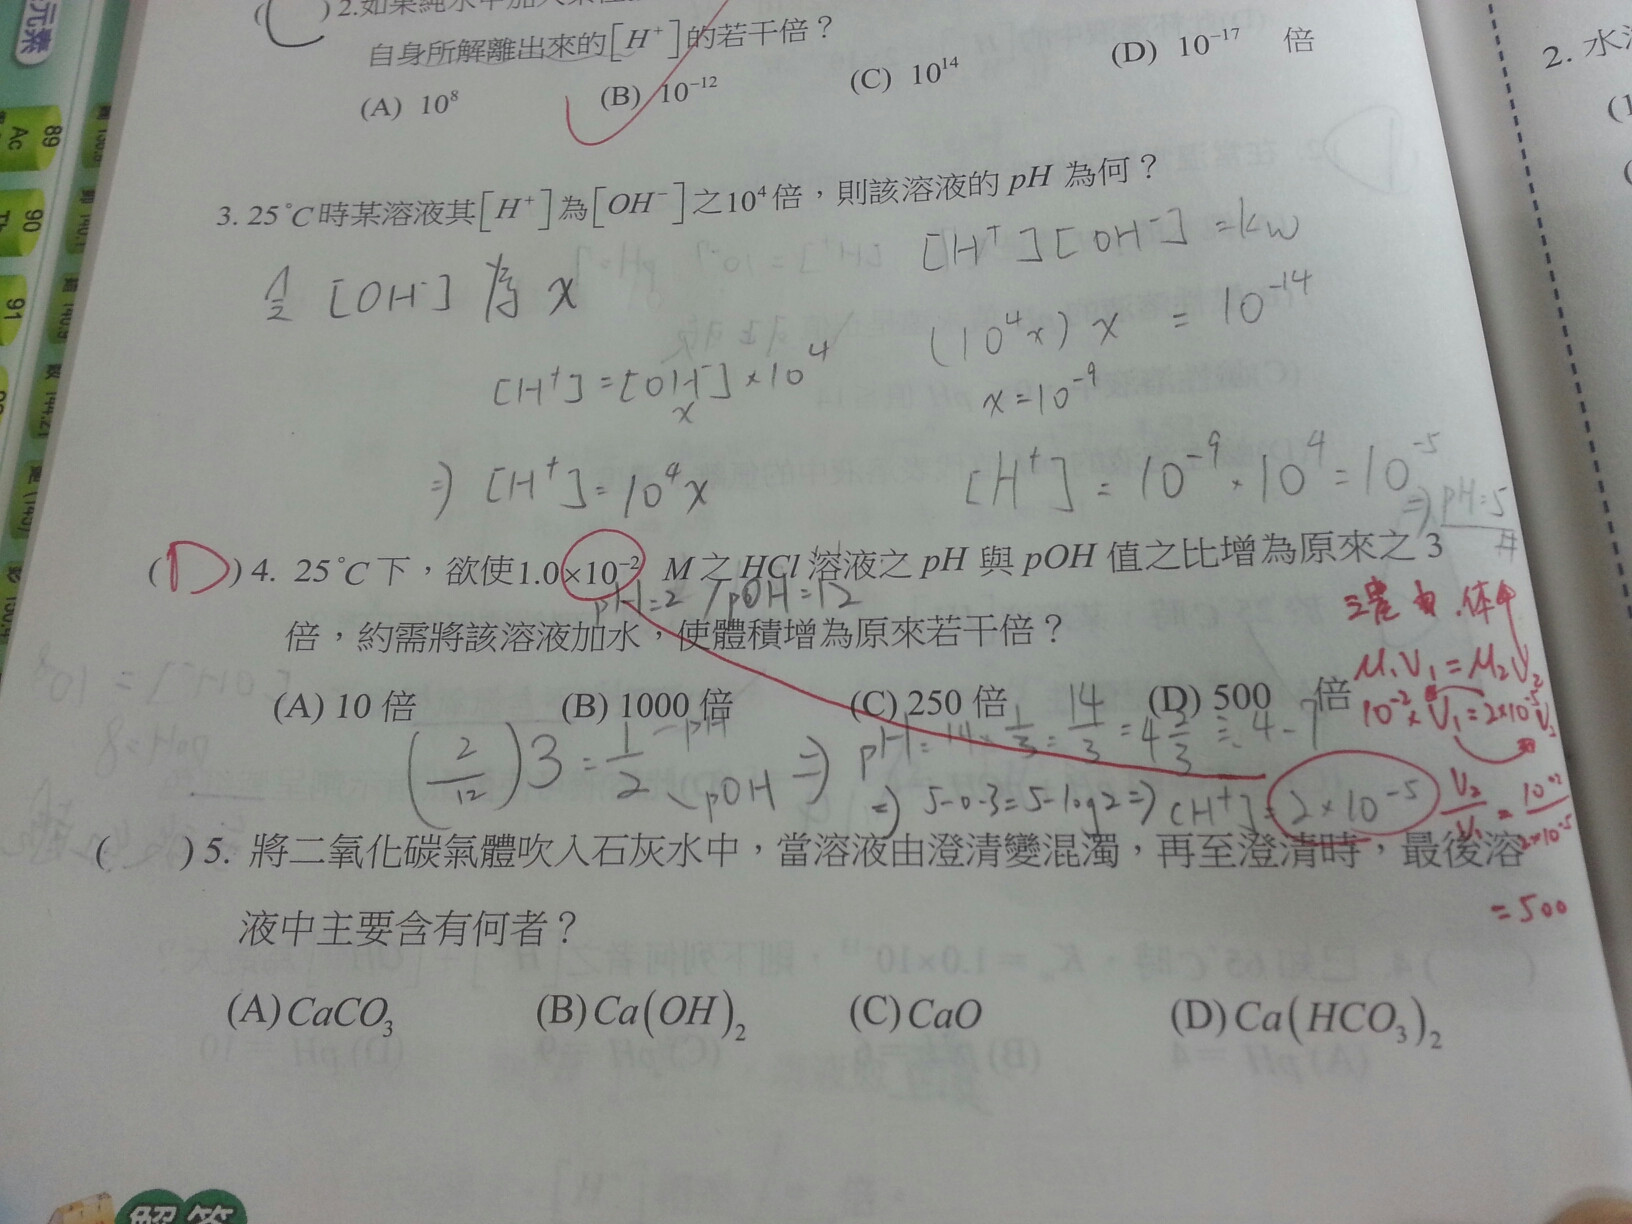 元素
89
Ac
90
Th
91
2.如果純水中加入某
自身所解離出來的[H⁺]的若干倍？
(A) 10⁸ (B) 10⁻¹² (C) 10¹⁴ (D) 10⁻¹⁷ 倍
3. 25°C時某溶液其[H⁺]為[OH⁻]之10⁴倍，則該溶液的 pH 為何？
令 [OH⁻] 為 x
[H⁺]=[OH⁻]×10⁴
x
⇒ [H⁺]=10⁴x
[H⁺][OH⁻]=kw
(10⁴x) x = 10⁻¹⁴
x=10⁻⁹
[H⁺] = 10⁻⁹×10⁴=10⁻⁵
⇒ pH=5
(D) 4. 25°C下，欲使1.0×10⁻² M 之 HCl 溶液之 pH 與 pOH 值之比增為原來之 3
pH=2 / pOH=12
倍，約需將該溶液加水，使體積增為原來若干倍？
(A) 10 倍 (B) 1000 倍 (C) 250 倍 (D) 500 倍
(2/12)3 = 1/2 -pH pOH ⇒ pH=14×1/3=14/3=4 2/3
⇒ 5-0.3=5-log2 ⇒ [H⁺]=2×10⁻⁵
M₁V₁=M₂V₂
10⁻²×V₁=2×10⁻⁵V₂
V₂/V₁=10⁻²/2×10⁻⁵
=500
( ) 5. 將二氧化碳氣體吹入石灰水中，當溶液由澄清變混濁，再至澄清時，最後溶
液中主要含有何者？
(A) CaCO₃ (B) Ca(OH)₂ (C) CaO (D) Ca(HCO₃)₂
解答
2. 水